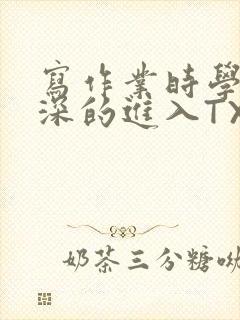 寫作業時學
深的進入TX
奶茶三分糖呦